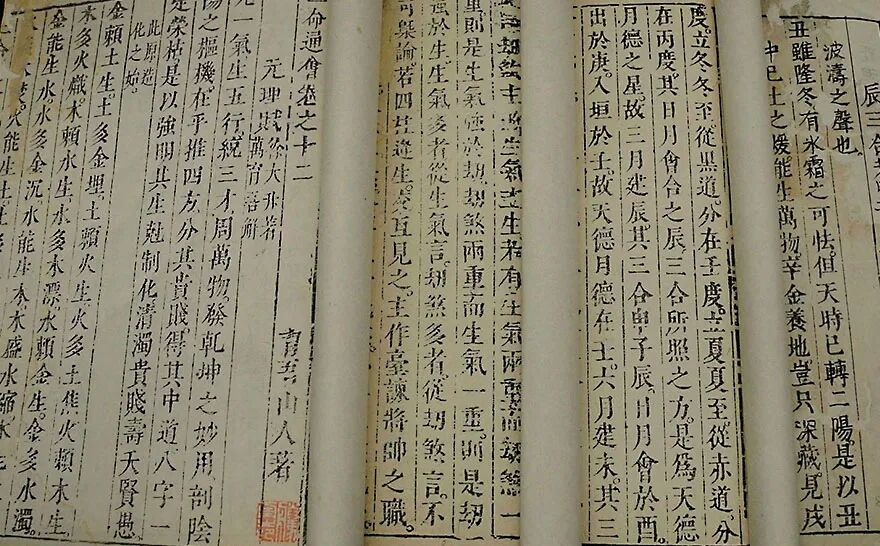 辰三合
波濤之聲也。
丑雖隆冬有氷霜之可怯。但天時已轉二陽是以丑
中己土之煖。能生萬物。辛金養地。豈只深藏見戌
度。立冬冬至從黑道。分在壬度。立夏夏至從赤道。分
在丙度。其日月會合之辰三合所照之方。是爲天德
月德之星。故三月建辰。其三合申子辰。日月會於酉。
出於庚。入垣於壬。故天德月德在壬。六月建未。其三
刧煞主生氣主生若有生氣兩重而刧煞一
重則是生氣強於刧。刧煞兩重而生氣一重。則是刧
強於生。生氣多者從生氣言。刧煞多者從刧煞言。不
可槩論。若四柱逢生。煞互見之。主作臺諫將帥之職。
命通會卷之十二
育吾山人著
元理賦徐大升著萬育吾解
一氣生五行。統三才周萬物。發乾坤之妙用。剖陰
陽之樞機。在乎推四方。分其貴賤。得其中道八字一
定榮枯是以強明其生尅制化清濁貴賤壽夭賢愚。
此原造
化之始。
金賴土生。土多金埋。土賴火生。火多土焦。火賴木生。
木多火熾。木賴水生。水多木漂。水賴金生。金多水濁。
金能生水。水多金沉。水能生木。木盛水縮。木
火能生土